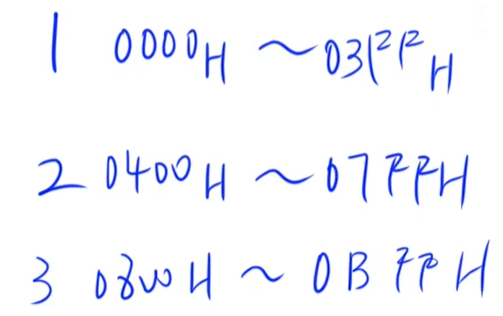 1 0000H ~ 03FFH
2 0400H ~ 07FFH
3 0800H ~ 0BFFH